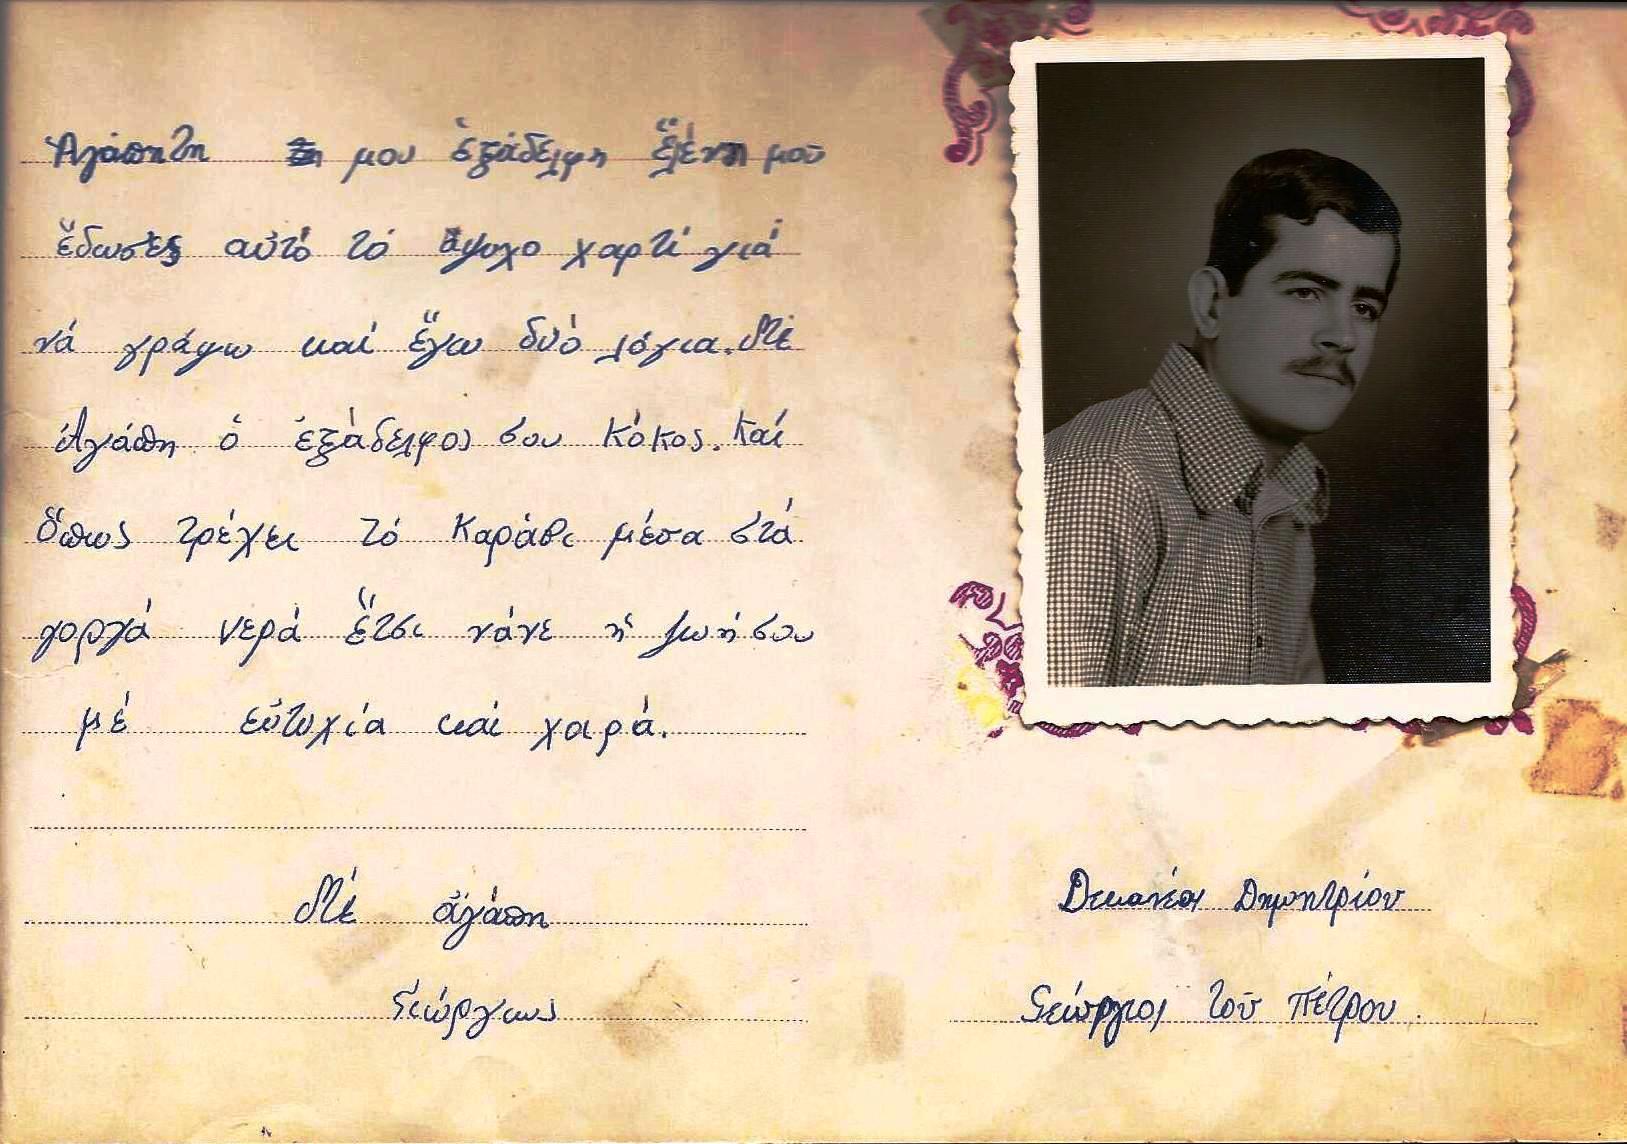 Ἀγάπητη μου ἐξάδελφη Ἕλένη μοῦ
ἕδωσες αὐτό τό ἄψυχο χαρτί γιά
νά γράψω καί ἕγω δυό λόγια. Μέ
Ἀγάπη ὁ ἐξάδελφος σου Κόκος. Καί
ὅπως τρέχει τό καράβι μέσα στά
γοργά νερά ἕτσι νάνε ἡ ζωή σου
μέ εὐτυχία και χαρά.
Μέ ἀγάπη
Γεώργιως
Δικανέοι Δημητρίου
Γεώργιος τοῦ Πέτρου.